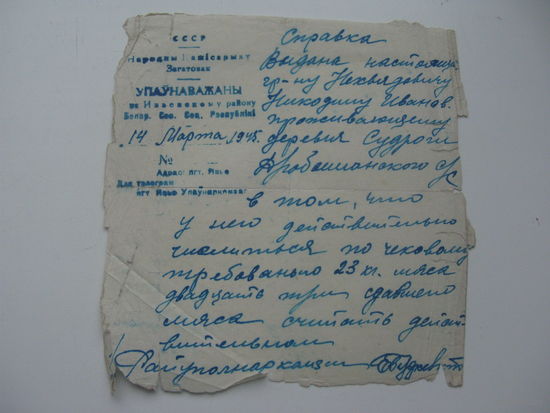 СССР
Народны Камісарыят
Загатовак
УПАЎНАВАЖАНЫ
па Ивянецкому району
Белар. Сов. Соц. Рэспублікі
14 Марта 1945
№
Адрас: пгт. Ивье
Для телеграм
пгт Ивье Упаўнаркамзаг
Справка
Выдана настоящ.
гр-ну
Никодиму Иванов.
проживающему
деревня Судроги
с/с
в том, что
у него действительно
числиться по чековому
требованью 23 кг. мяса
двадцать три сдавшего
мяса считать дейст-
вительном